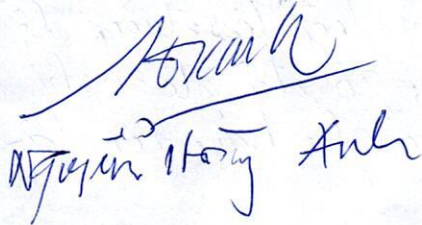 Nguyễn Hồng Anh